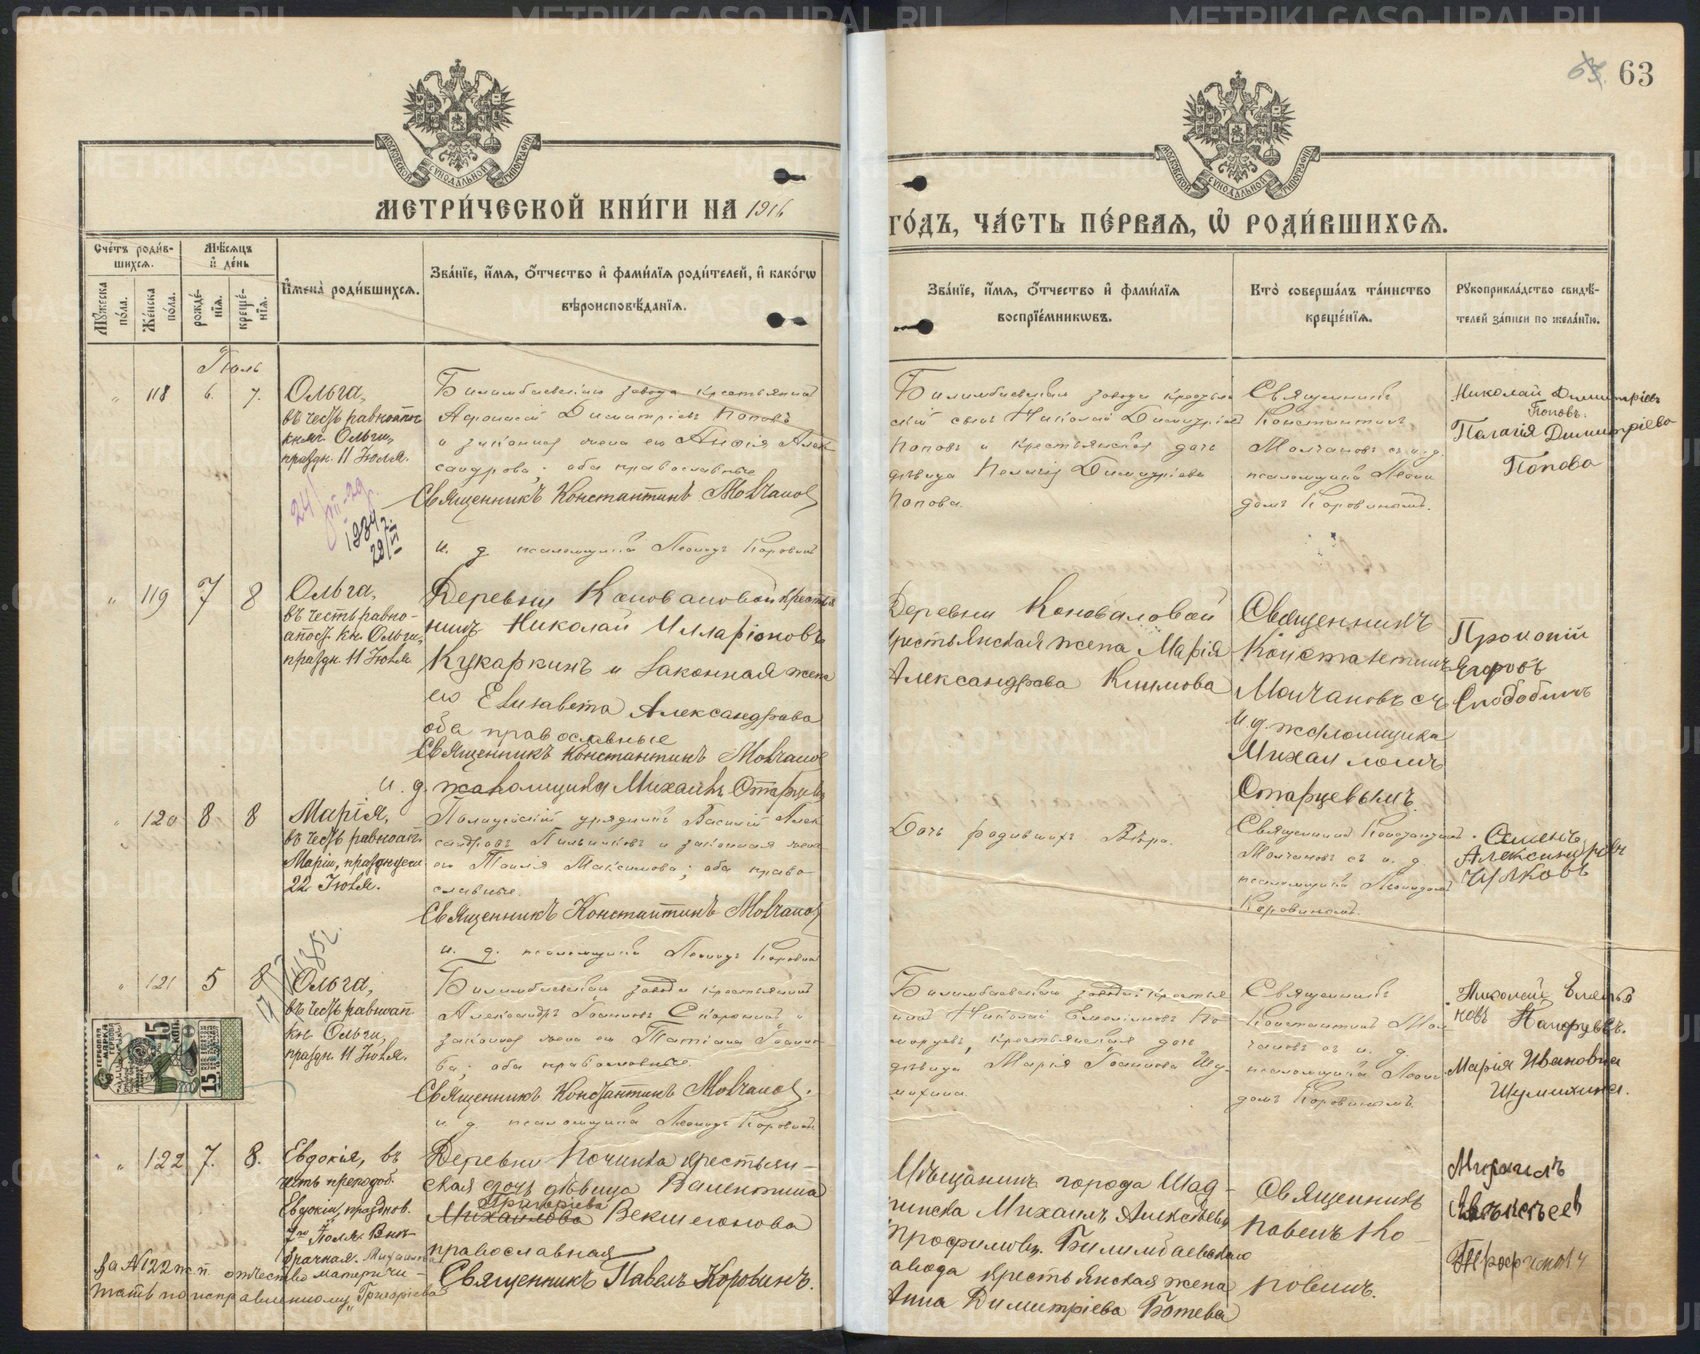 63
МОСКОВСКОЙ СѴНОДАЛЬНОЙ ТИПОГРАФІИ
МОСКОВСКОЙ СѴНОДАЛЬНОЙ ТИПОГРАФІИ
МЕТРИ́ЧЕСКОЙ КНИ́ГИ НА 1916
ГО́ДЪ, ЧА́СТЬ ПЕ́РВАЯ, Ѡ҆ РОДИ́ВШИХСЯ.
Сче́тъ роди́в-
шихся.
Мѣ́сяцъ
и҆ де́нь
Мꙋ́жеска
по́ла.
Же́нска
по́ла.
рожде́-
нїя.
креще́-
нїя.
И҆мена̀ роди́вшихся.
Зва́нїе, и҆́мя, ѻ҆́тчество и҆ фами́лїя роди́телей, и҆ како́гѡ
вѣроисповѣ́данїя.
Зва́нїе, и҆́мя, ѻ҆́тчество и҆ фами́лїя
воспрїе́мникѡвъ.
Кто̀ соверша́лъ та́инство
креще́нїя.
Рꙋкоприкла́дство свидѣ́-
телей за́писи по жела́нїю.
Іюль
" 118 6. 7. Ольга,
въ честь равноап.
княг. Ольги,
праздн. 11 Іюля.
Билимбаевскаго завода крестьянинъ
Аѳонасій Димитріевъ Поповъ
и законная жена его Анфія Алек
сандрова; оба православные
Священникъ Константинъ Молчановъ
и. д. псаломщика Леонидъ Коровинъ
Билимбаевскаго завода крестьян
скій сынъ Николай Димитріевъ
Поповъ и крестьянская дочь
дѣвица Пелагія Димитріева
Попова.
Священникъ
Константинъ
Молчановъ съ и. д.
псаломщика Леони
домъ Коровинымъ.
Николай Димитріевъ
Поповъ.
Пелагія Димитріева
Попова
" 119 7 8 Ольга,
въ честь равно-
апост. кн. Ольги,
праздн. 11 Іюля
Деревни Коноваловой крестья
нинъ Николай Илларіоновъ
Кукаркинъ и законная жена
его Елизавета Александрова
оба православные
Священникъ Константинъ Молчановъ
и. д. псаломщика Михаилъ Старцевъ
Деревни Коноваловой
крестьянская жена Марія
Александрова Климова
Священникъ
Константинъ
Молчановъ съ
и. д. псаломщика
Михаиломъ
Старцевымъ.
Прокопій
Слободинъ
" 120 8 8 Марія,
въ честь равноап.
Маріи, празднуем.
22 Іюля.
Полицейскій урядникъ Василій Алек
сандровъ и законная жена
его Таисія Максимова; оба право
славные.
Священникъ Константинъ Молчановъ
и. д. псаломщика Леонидъ Коровинъ
Дочь родившихъ Вѣра.
Священникъ Константинъ
Молчановъ съ и. д.
псаломщика Леонидомъ
Коровинымъ.
Семенъ
Александровъ
" 121 5 8 Ольга,
въ честь равноап.
кн. Ольги,
праздн. 11 Іюля.
15 КОП.
15
Билимбаевскаго завода крестьянинъ
Александръ Іоанновъ Скорынинъ и
законная жена его Татіана Іоанно
ва; оба православные.
Священникъ Константинъ Молчановъ.
и. д. псаломщика Леонидъ Коровинъ
Билимбаевскаго завода крестья
нинъ Николай
крестьянская дочь
дѣвица Марія Іоаннова Шу
михина
Священникъ
Константинъ Мол
чановъ съ и. д.
псаломщика Леони
домъ Коровинымъ
Николай
Марія Ивановна
Шумихина.
" 122 7. 8. Евдокія, въ
честь преподоб.
Евдокіи, празднов.
7го Іюля. Внѣ-
брачная.
Деревни Починка крестьян-
ская дочь дѣвица Валентина
Григорьева
Михаилова Векшегонова
православная
Священникъ Павелъ Коровинъ.
За № 122 ж. п. отчество матери чи-
тать по исправленному „Григорьева"
Мѣщанинъ города Шад-
ринска Михаилъ Алексѣевъ
Трофимовъ. Билимбаевскаго
завода крестьянская жена
Анна Димитріева Ботева
Священникъ
Павелъ Ко-
ровинъ.
Михаилъ
Алексѣевъ